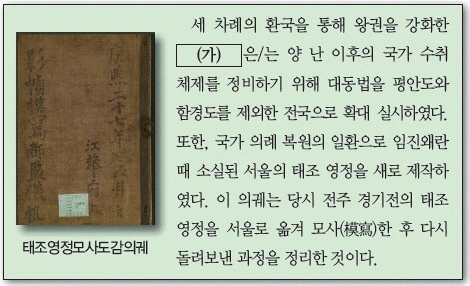 康熙二十七年
江華府
影幀模寫都監儀軌
태조영정모사도감의궤
세 차례의 환국을 통해 왕권을 강화한
(가) 은/는 양 난 이후의 국가 수취
체제를 정비하기 위해 대동법을 평안도와
함경도를 제외한 전국으로 확대 실시하였다.
또한, 국가 의례 복원의 일환으로 임진왜란
때 소실된 서울의 태조 영정을 새로 제작하
였다. 이 의궤는 당시 전주 경기전의 태조
영정을 서울로 옮겨 모사(模寫)한 후 다시
돌려보낸 과정을 정리한 것이다.